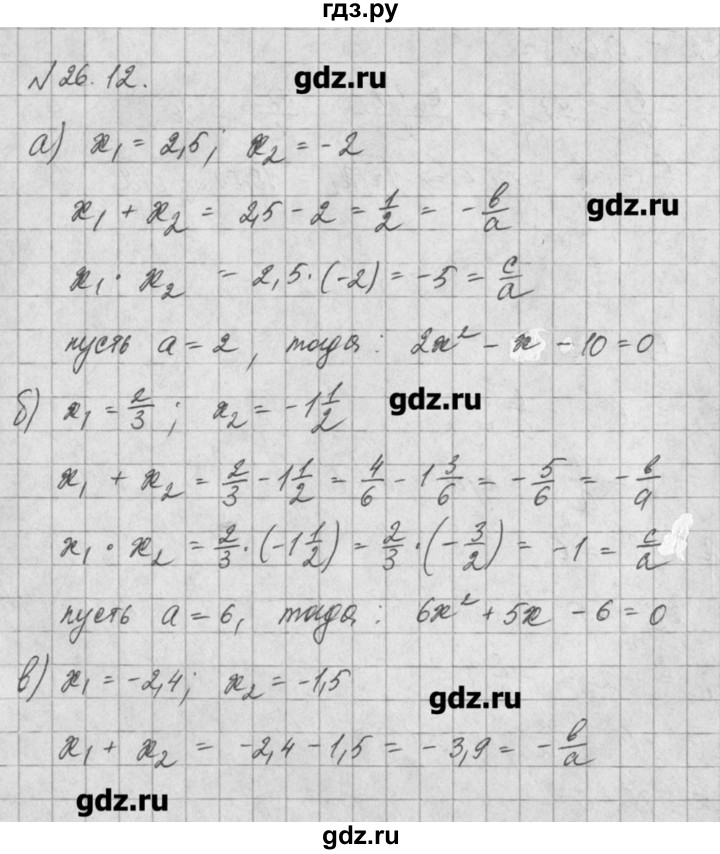 гдз.ру
№26.12.
gdz.ru
а) x₁ = 2,5; x₂ = -2
x₁ + x₂ = 2,5 - 2 = 1/2 = -в/а
gdz.ru
x₁ · x₂ = 2,5 · (-2) = -5 = с/а
пусть а = 2, тогда: 2x² - x - 10 = 0
б) x₁ = 2/3; x₂ = -1 1/2
gdz.ru
x₁ + x₂ = 2/3 - 1 1/2 = 4/6 - 1 3/6 = -5/6 = -в/а
x₁ · x₂ = 2/3 · (-1 1/2) = 2/3 · (-3/2) = -1 = с/а
пусть а = 6, тогда: 6x² + 5x - 6 = 0
в) x₁ = -2,4; x₂ = -1,5
gdz.ru
x₁ + x₂ = -2,4 - 1,5 = -3,9 = -в/а
gdz.ru
gdz.ru